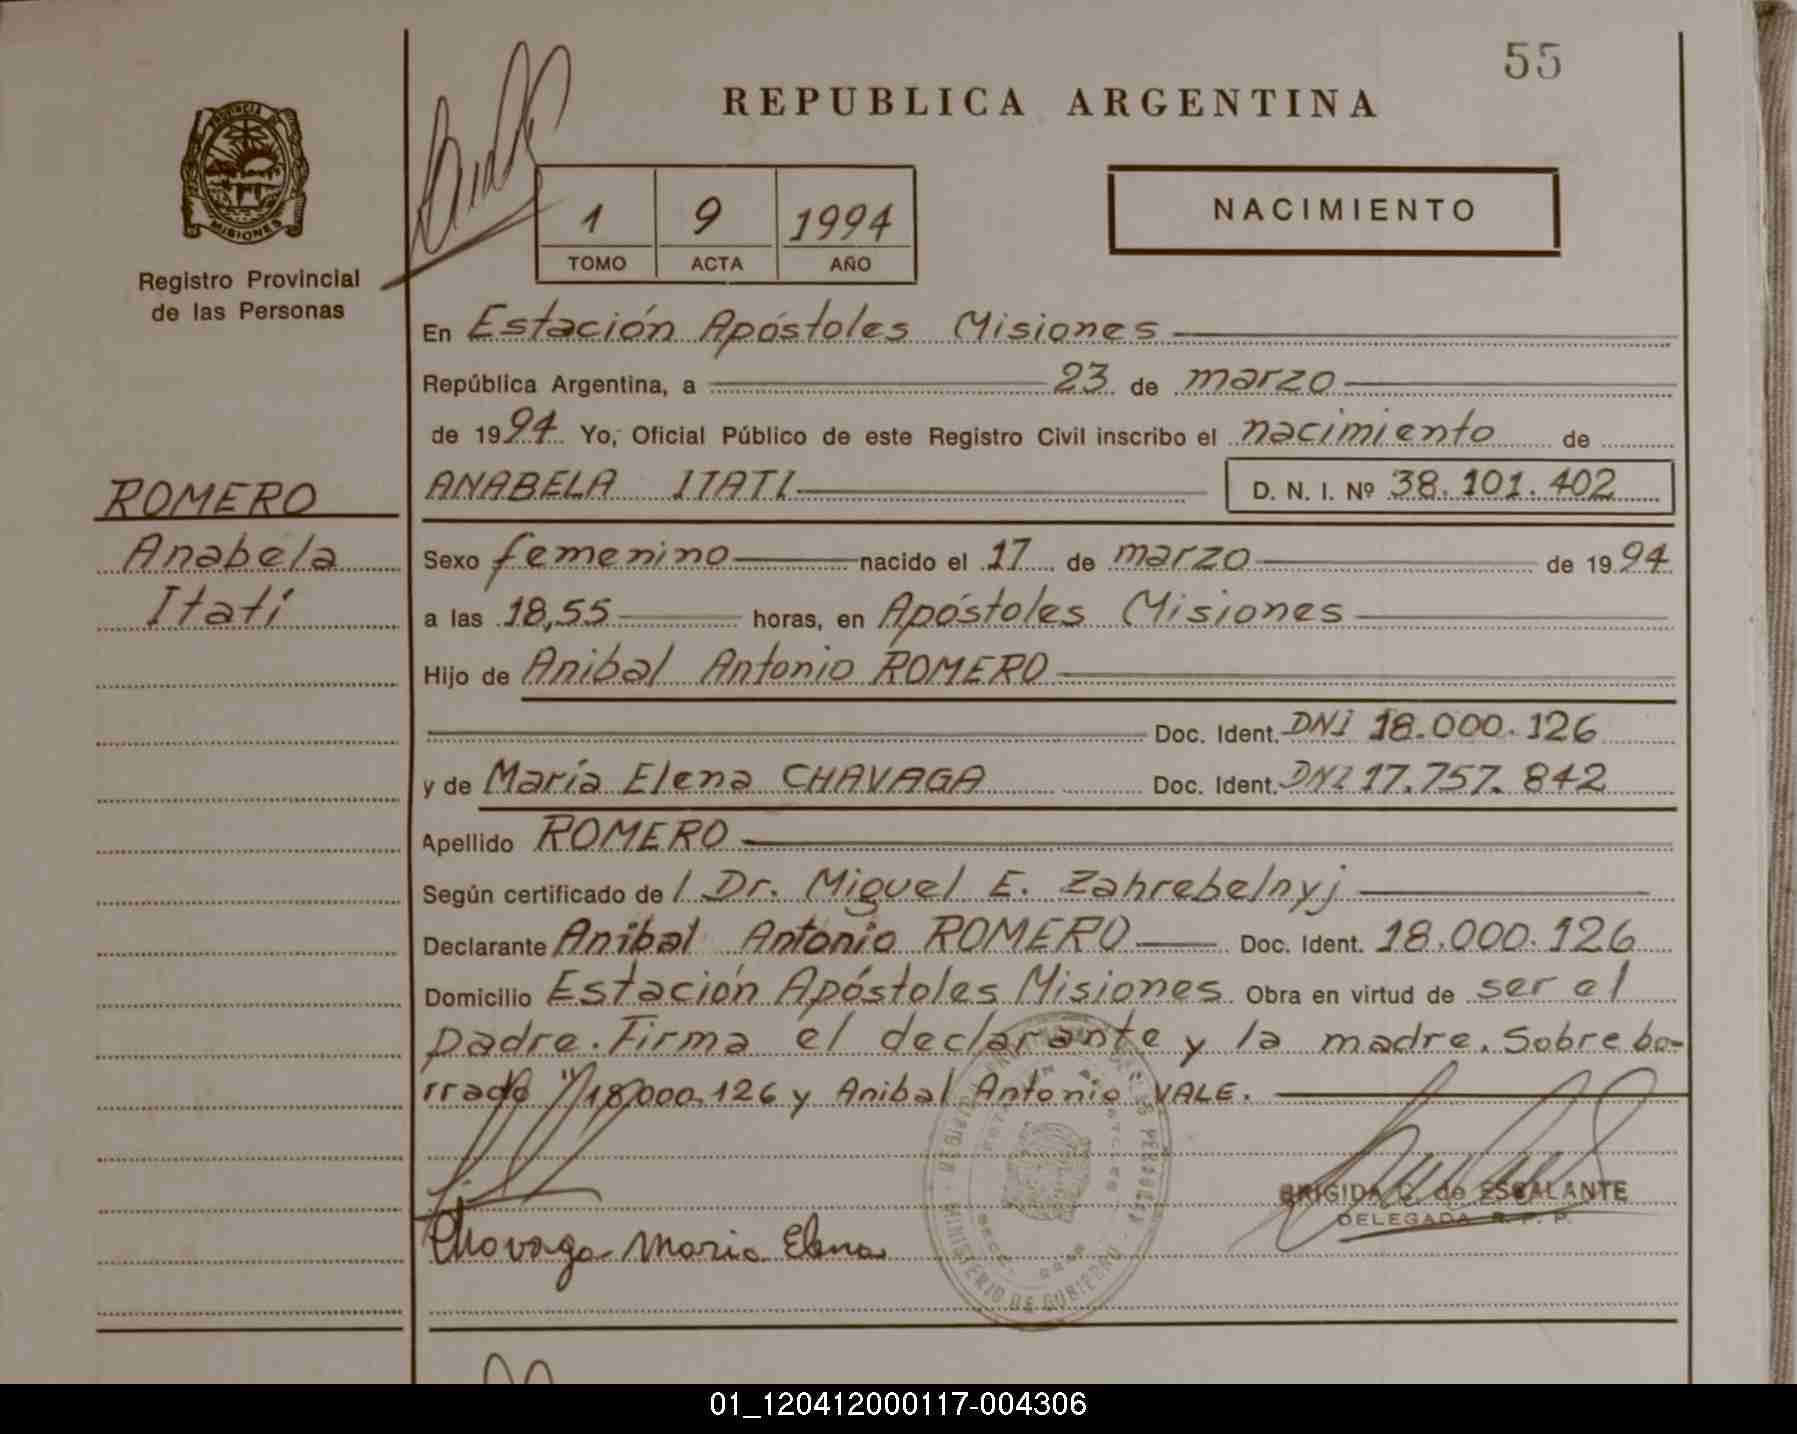 55
REPUBLICA ARGENTINA
PROVINCIA DE
MISIONES
Registro Provincial
de las Personas
1 9 1994
TOMO ACTA AÑO
NACIMIENTO
En Estación Apóstoles Misiones
República Argentina, a 23 de marzo
de 1994 Yo, Oficial Público de este Registro Civil inscribo el nacimiento de
ROMERO
Anabela
Itatí
ANABELA ITATI D. N. I. Nº 38.101.402
Sexo femenino nacido el 17 de marzo de 1994
a las 18,55 horas, en Apóstoles Misiones
Hijo de Anibal Antonio ROMERO
Doc. Ident. DNI 18.000.126
y de María Elena CHAVAGA Doc. Ident. DNI 17.757.842
Apellido ROMERO
Según certificado de / Dr. Miguel E. Zahrebelnyj
Declarante Anibal Antonio ROMERO Doc. Ident. 18.000.126
Domicilio Estación Apóstoles Misiones Obra en virtud de ser el
padre. Firma el declarante y la madre. Sobre bo-
rrado "/18.000.126 y Anibal Antonio VALE.
BRIGIDA G. de ESCALANTE
DELEGADA R. P. P.
Chavaga Maria Elena
MINISTERIO DE GOBIERNO
01_120412000117-004306